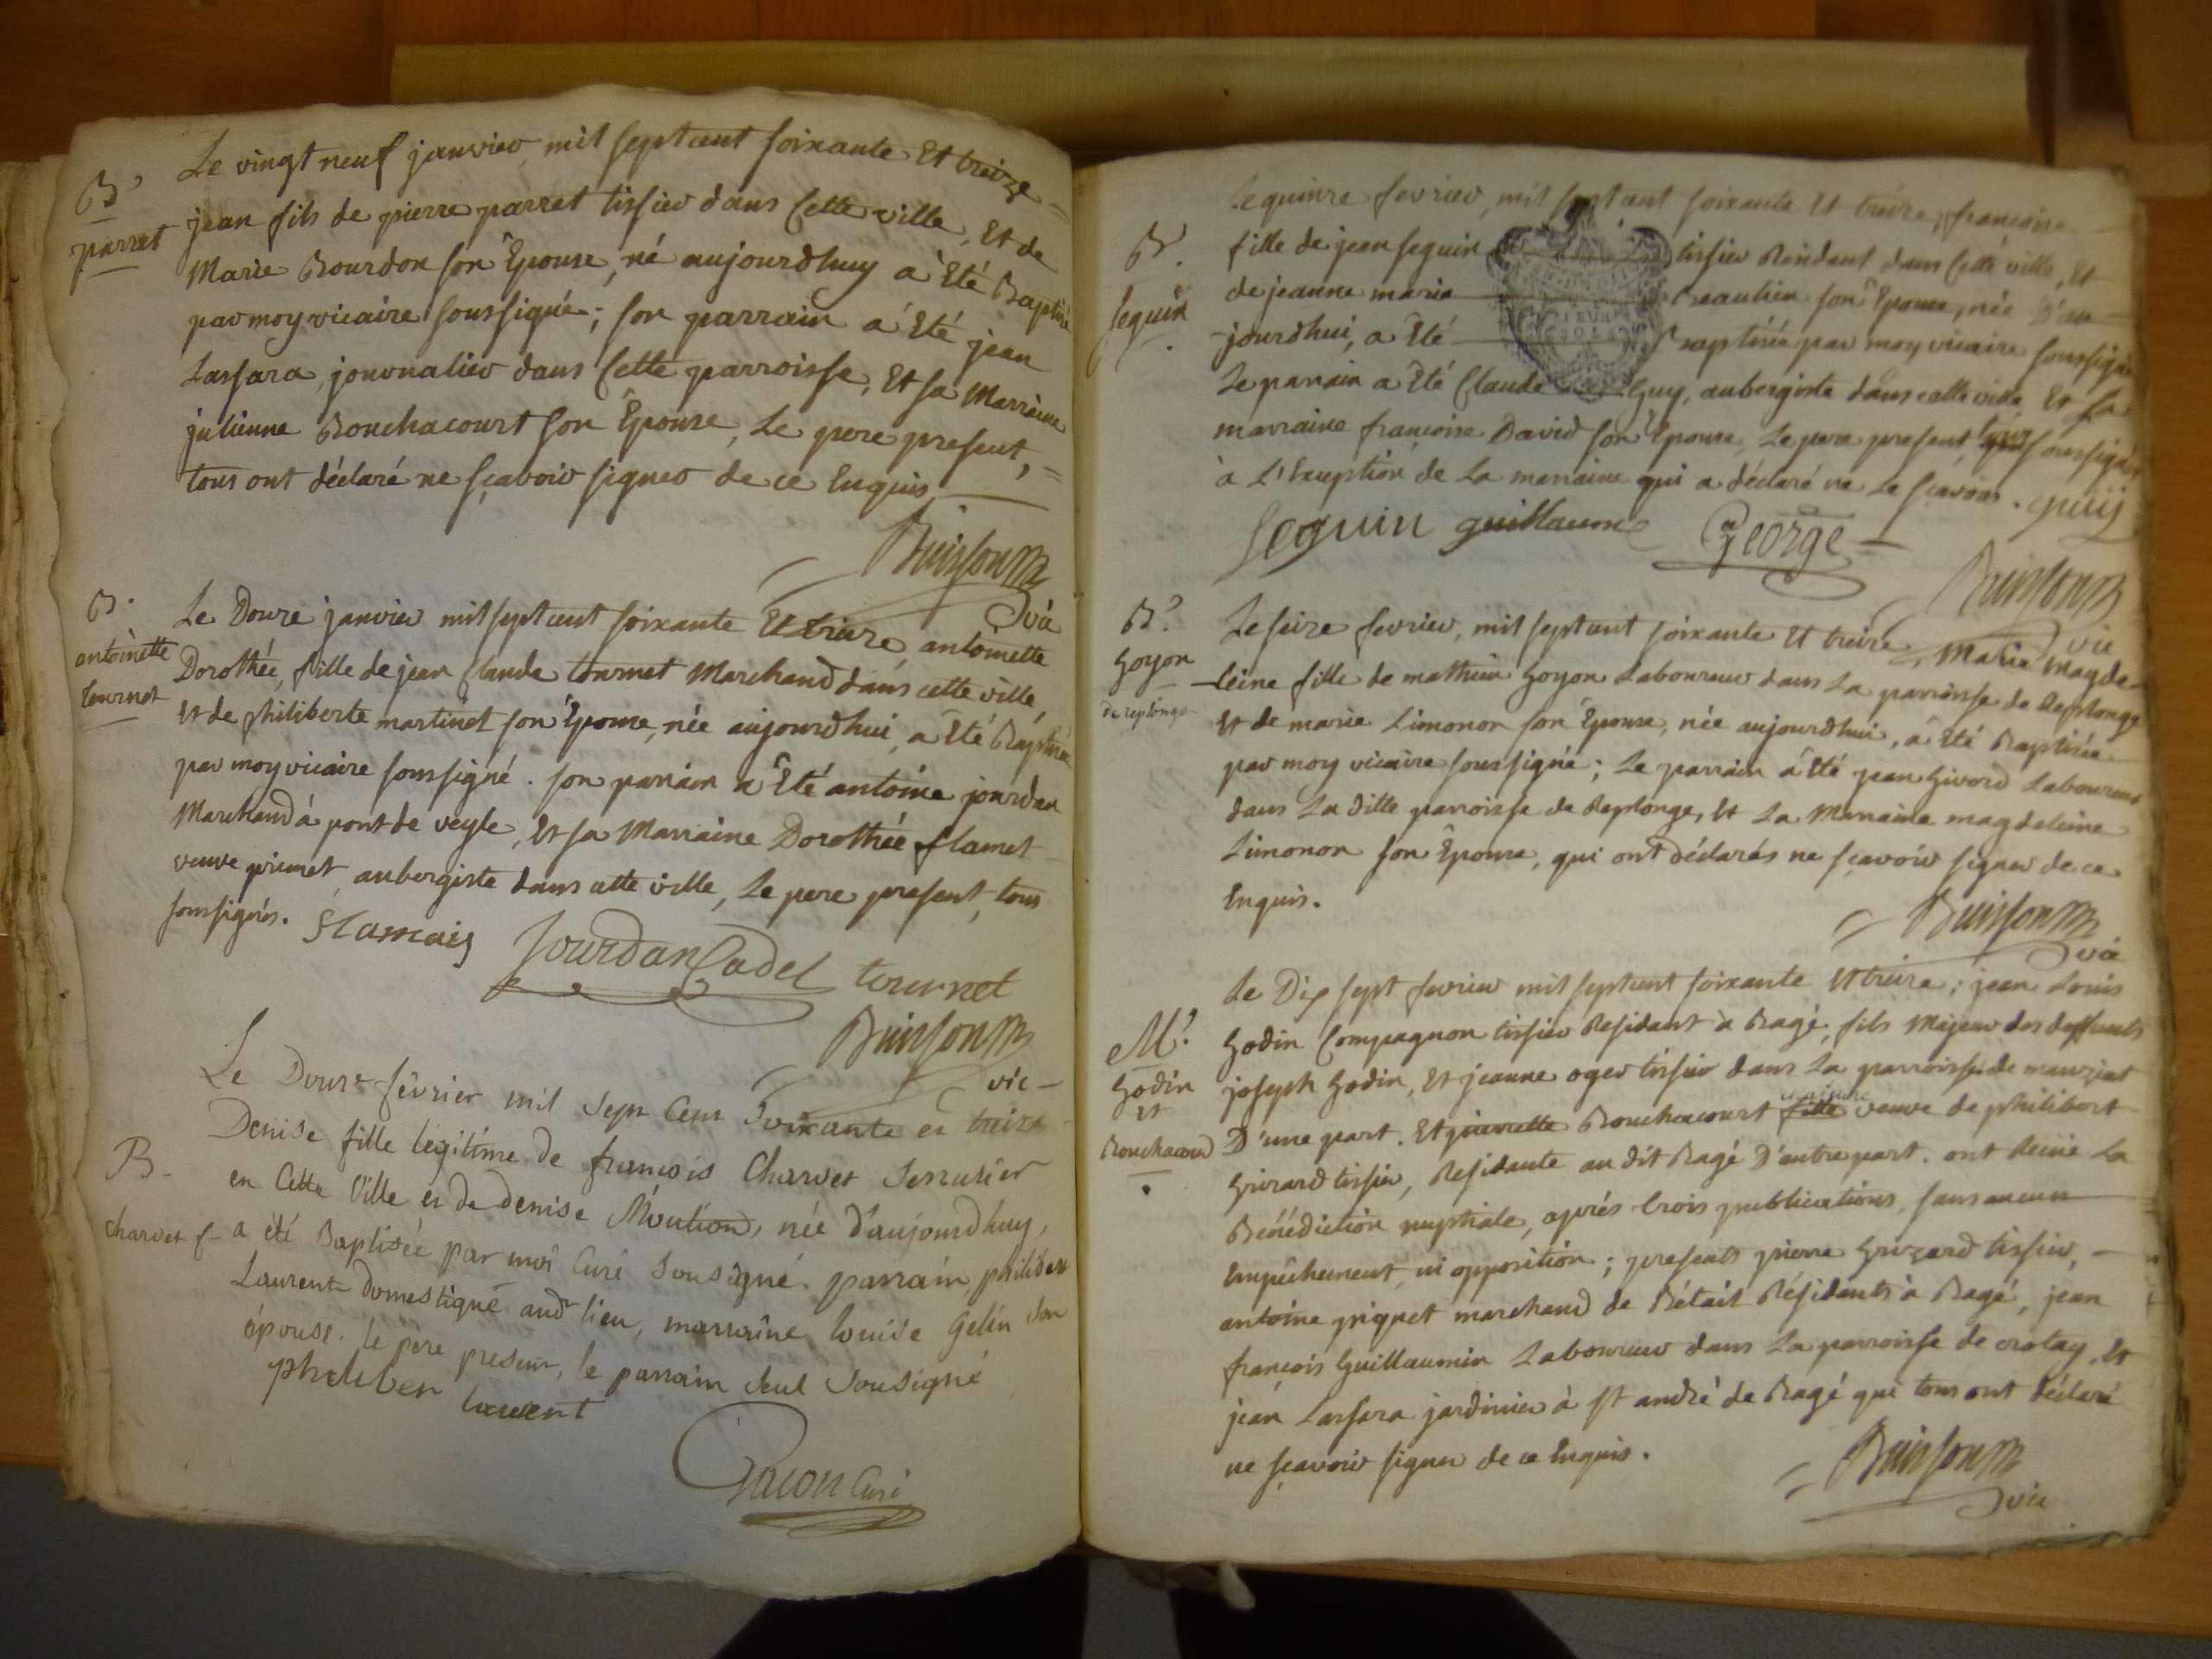 Le vingt neuf janvier mil sept cent soixante Et treize
B
parret
jean fils de pierre parret tissier dans Cette ville, Et de
Marie Bourdon son Epouse, né aujourdhuy a Eté Baptisé
par moy vicaire soussigné; son parrain a Eté jean
Lassara, journalier dans Cette parroisse, Et sa Marraine
julienne Bouchacourt son Epouse, Le pere present,
tous ont déclaré ne sçavoir signer de ce Enquis
Buisson
vic
B.
antoinette
tournet
Le Douze janvier mil sept cent soixante Et treize antoinette
Dorothée, fille de jean Claude tournet Marchand dans cette ville,
Et de philiberte martinet son Epouse, née aujourdhui, a Eté Baptisée
par moy vicaire soussigné. son parrain a Eté antoine jourdan
Marchand à pont de veyle, Et sa Marraine Dorothée flamet
veuve primet, aubergiste dans cette ville, Le pere present, tous
soussignés. flamais
Jourdan Cadel tournet
Buisson
vic
Le Douze février mil Sept Cent Soixante et treize
Denise fille légitime de françois Charvet Serrurier
B.
en Cette Ville et de denise Moution, née d'aujourdhuy,
Charvet f.
a été Baptisée par moi Curé Sousigné. parrain, philibert
Laurent domestique aud lieu, marraine louise Gelin son
épouse. le père present, le parrain seul Sousigné
philiber lauent
Gacon Curé
Le quinze fevrier, mil sept cent soixante Et treize, francoise
B.
Seguin
fille de jean seguin tissier Residant dans Cette ville, Et
de jeanne marie Beaulieu son Epouse, née D'au
jourdhui, a Eté Baptisée par moy vicaire soussigné
Le parrain a Eté Claude Guy, aubergiste dans cette ville, Et la
marraine françoise David son Epouse, Le pere present, tous soussignés
à L'Exception de La marraine qui a déclaré ne Le sçavoir. guij
Seguin guillaume George
Buisson
vic
B.
Goyon
de replonge
Le seize fevrier, mil sept cent soixante Et treize, Marie Magde-
leine fille de mathieu Goyon Laboureur dans La parroisse de Replonge
Et de marie Limonon son Epouse, née aujourdhui, a Eté Baptisée
par moy vicaire soussigné; Le parrain a Eté jean Givord Laboureur
dans La ditte parroisse de Replonge, Et La Marraine magdeleine
Limonon son Epouse, qui ont déclarés ne sçavoir signer de ce
Enquis.
Buisson
vic
Le Dix sept fevrier mil sept cent soixante Et treize; jean Louis
M.
Godin
et
Bouchacourd
Godin Compagnon tissier Residant à Bagé, fils Majeur des deffunts
joseph Godin, Et jeanne oger tissier dans La parroisse de manziat
D'une part. Et pierrette Bouchacourt fille majeure veuve de philibert
Grizard tissier, Residante au dit Bagé D'autre part. ont Reciie La
Bénédiction nuptiale, aprés trois publications, sans aucun
Empêchement, ni opposition; presents pierre Grizard tissier,
antoine piquet marchand de Détail Résidants à Bagé, jean
françois Guillaumin Laboureur dans La parroisse de crotay, Et
jean Lassara jardinier à st andré de Bagé qui tous ont déclaré
ne sçavoir signer de ce Enquis.
Buisson
vic